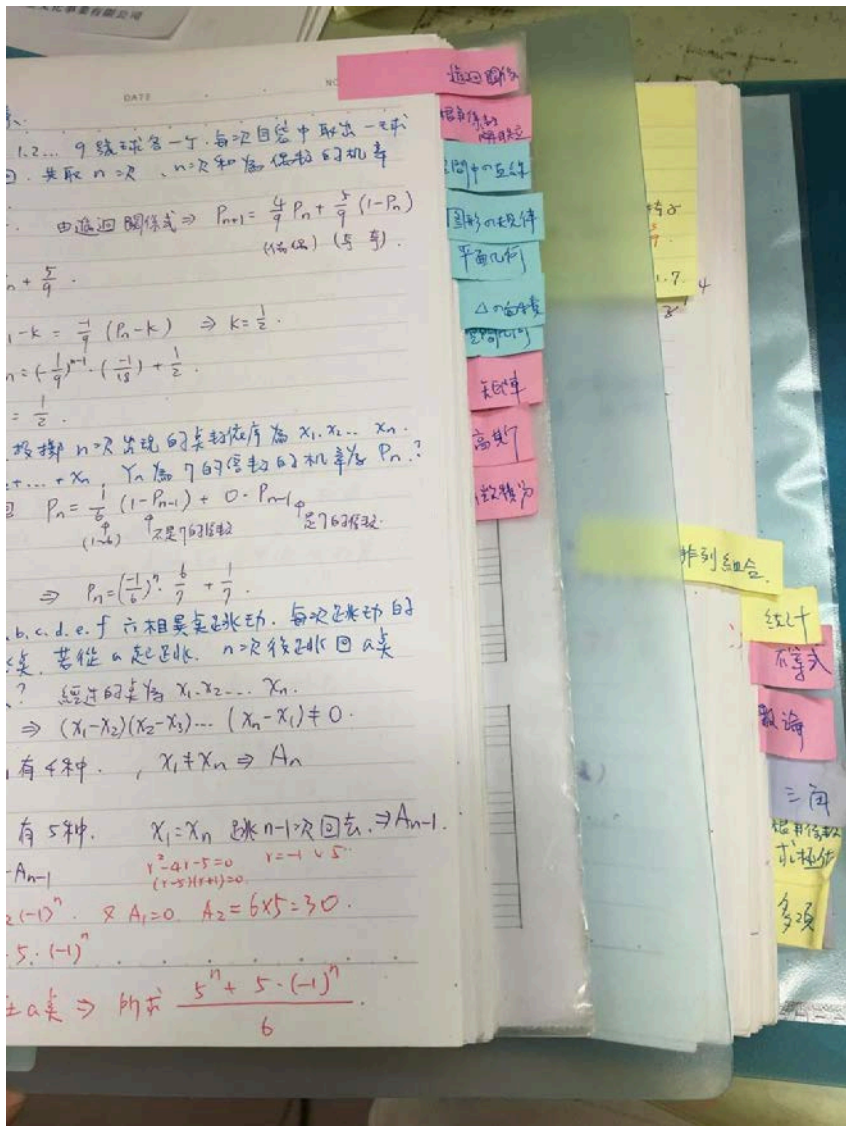 事業有限公司
DATE
NO
1.2... 9 號球各一个.每次自袋中取出一球
回. 共取 n 次, n 次和為偶數的机率
由遞迴關係式 ⇒ Pn+1 = 4/9 Pn + 5/9 (1-Pn)
n + 5/9 .
1-k = -1/9 (Pn-k) ⇒ k = 1/2 .
n = (-1/9)^n-1 . (-1/18) + 1/2 .
= 1/2 .
投擲 n 次出現的點數依序為 x1.x2... xn.
+...+xn, Yn 為 7 的倍數的机率為 Pn.?
Pn = 1/6 (1-Pn-1) + 0 . Pn-1
(1~6) 不是7的倍數 是7的倍數.
⇒ Pn = (-1/6)^n . 6/7 + 1/7 .
b.c.d.e.f 六相異點跳動. 每次跳動的
點. 若從 a 起跳. n 次後跳回 a 點
? 經過的點為 x1.x2... xn.
⇒ (x1-x2)(x2-x3)... (xn-x1) ≠ 0.
有 4 種. , x1≠xn ⇒ An
有 5 種. x1=xn 跳 n-1 次回去. ⇒ An-1.
-An-1 r²-4r-5=0 r=-1 ∨ 5
(r-5)(r+1)=0
2(-1)^n. 又 A1=0. A2=6x5=30.
5.(-1)^n
a點 ⇒ 所求 5^n + 5.(-1)^n / 6
遞迴關係
空間中の直線
圖形の規律
平面几何
空間几何
矩陣
高斯
排列組合
統計
不等式
數論
三角
求極值
多項